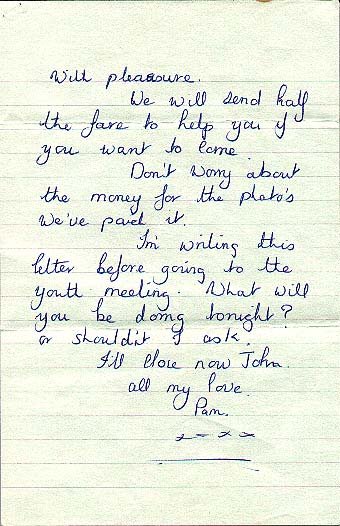 With pleasure.
We will send half
the fare to help you if
you want to come
Don't worry about
the money for the photo's
We've paid it.
I'm writing this
letter before going to the
youth meeting. What will
you be doing tonight?
or shouldn't I ask.
I'll close now John.
all my love.
Pam.
x - x x